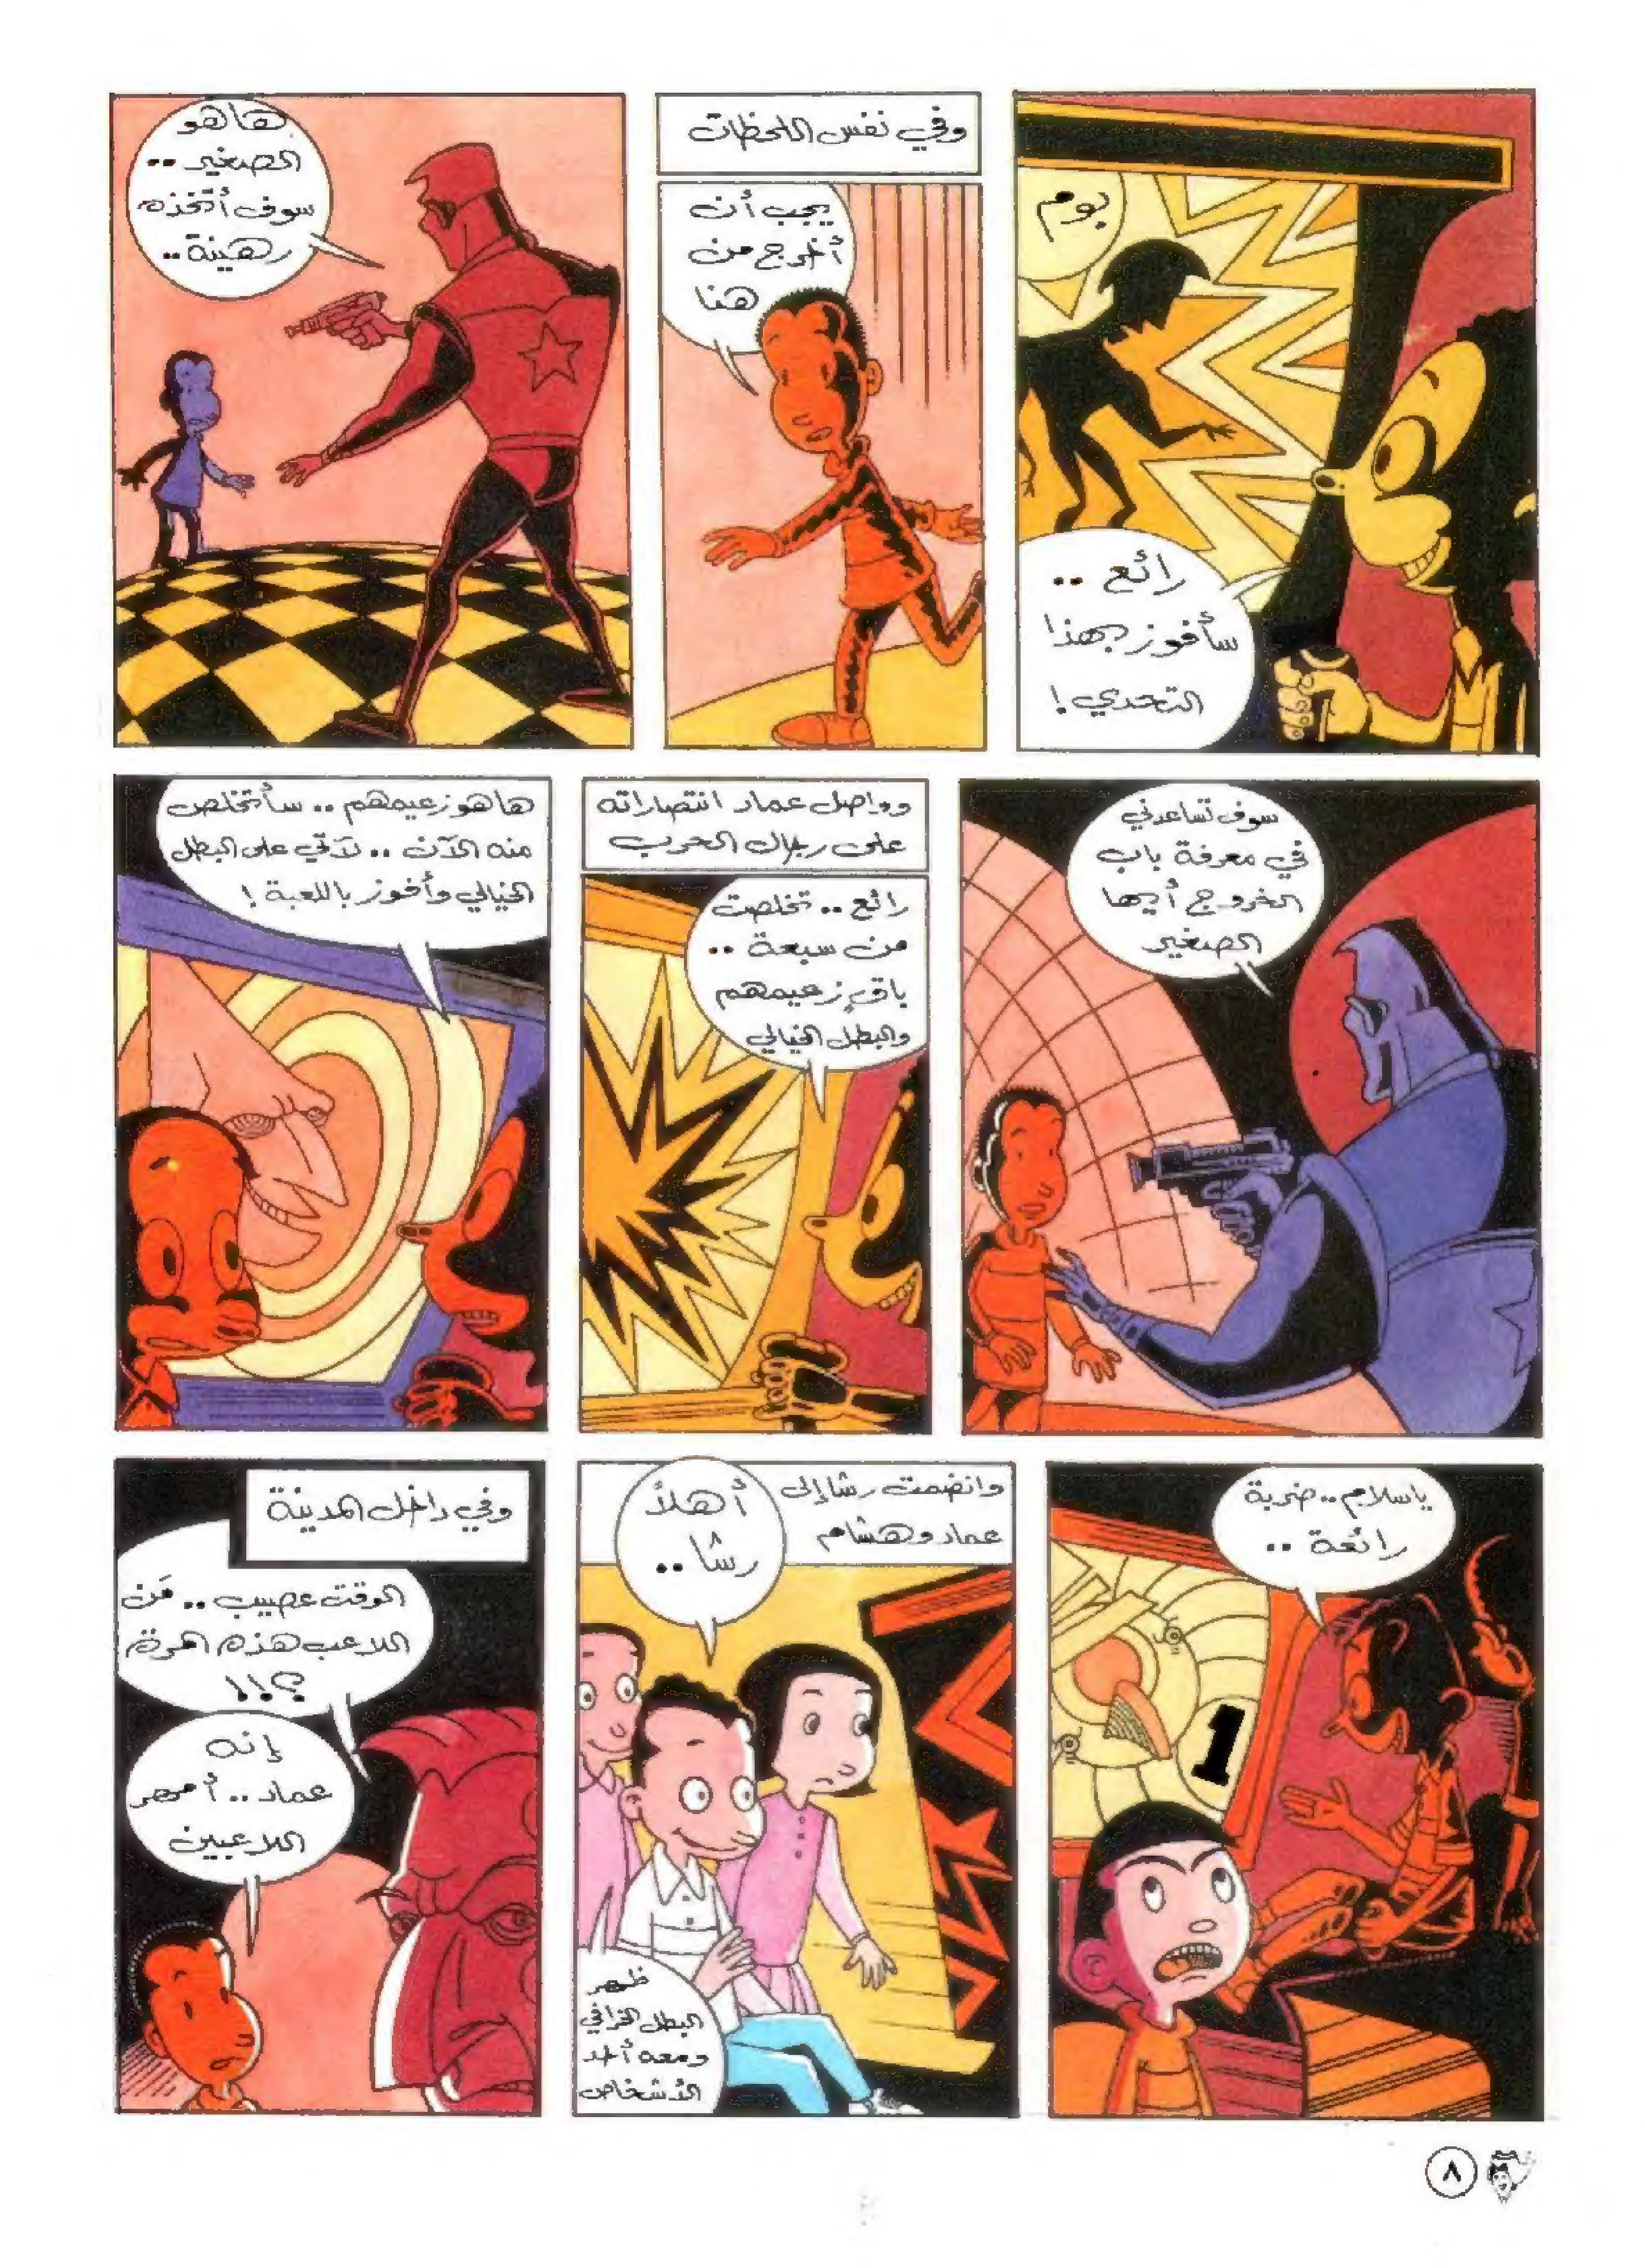 بوم
رائع ..
سأفوز بهذا
التحدي !
وفي نفس اللحظات
يجب أن
أخرج من
هنا
ها هو
الصغير ..
سوف أتخذه
رهينة ..
سوف تساعدني
في معرفة باب
الخروج أيها
الصغير
وواصل عماد انتصاراته
على رجال الحرب
رائع .. تخلصت
من سبعة ..
باقٍ زعيمهم
والبطل الخيالي
ها هو زعيمهم .. سأتخلص
منه الآن .. لآتي على البطل
الخيالي وأفوز باللعبة !
ياسلام .. ضربة
رائعة ..
1
وانضمت رشا إلى
عماد وهشام
أهلاً
رشا ..
ظهر
البطل الخرافي
ومعه أحد
الأشخاص
وفي داخل المدينة
الوقت عصيب .. مَن
اللاعب هذه المرة
؟!!
إنه
عماد .. أمهر
اللاعبين
٨